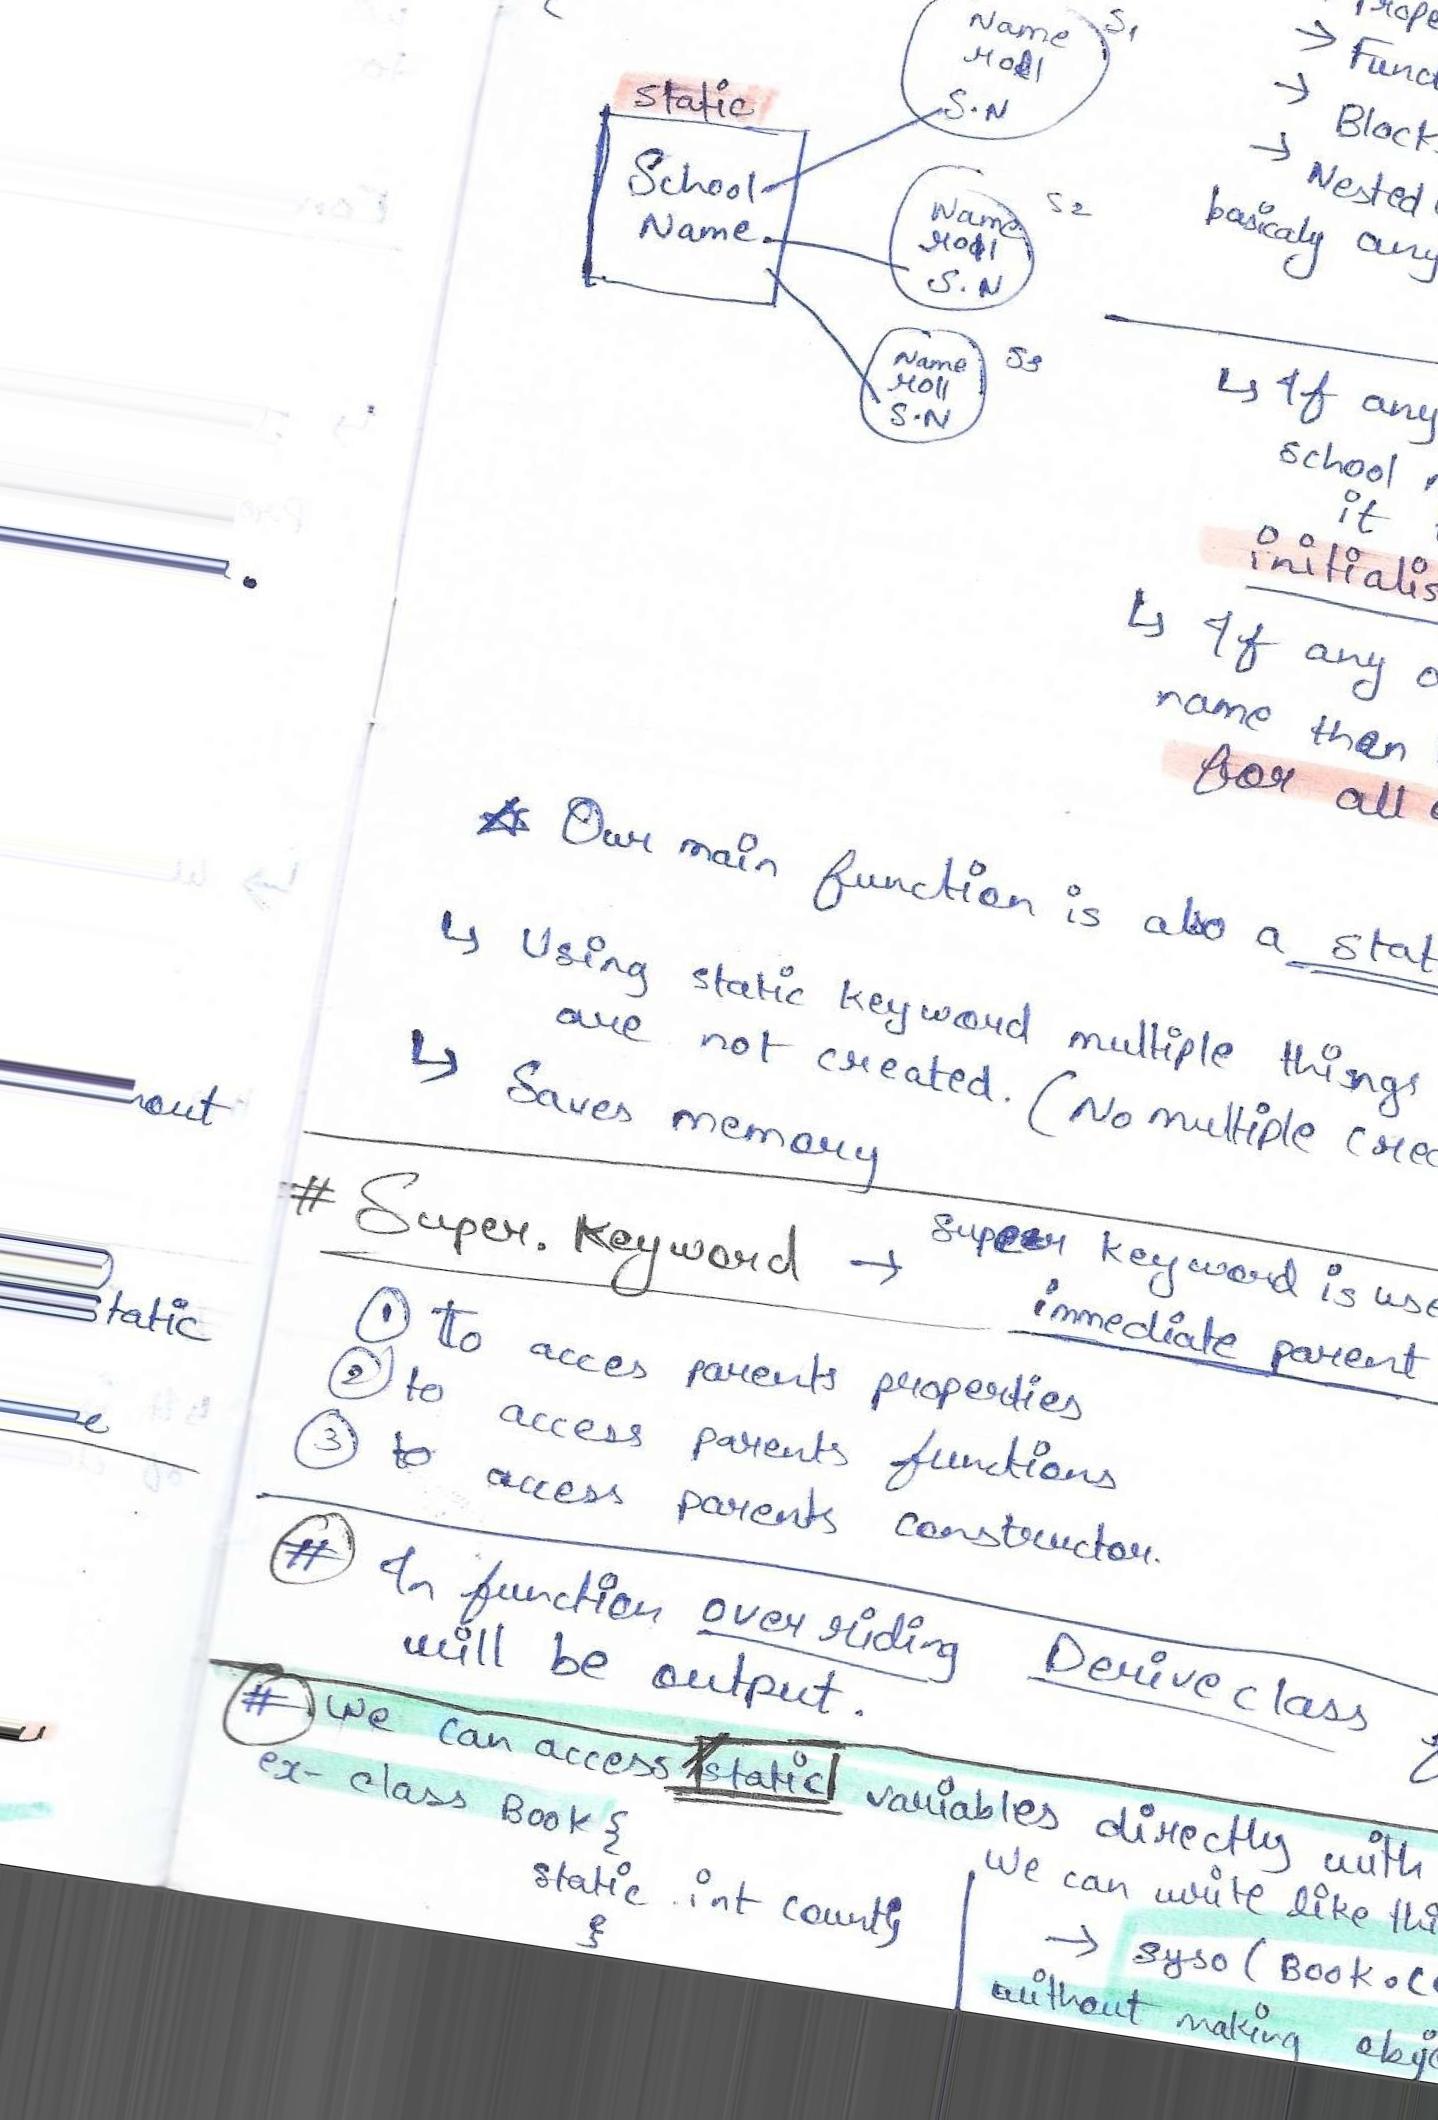 static
School
Name
Name
roll
S.N
S1
Name
roll
S.N
S2
Name
roll
S.N
S3
→ Funct
→ Block
→ Nested
basicaly any
↳ If any
school
it
initialis
↳ If any o
name than
for all
☆ Our main function is also a stat
↳ Using static keyword multiple things
are not created. (No multiple crea
↳ Saves memory
# Super. Keyword → super keyword is use
immediate parent
① To acces parents properties
② to access parents functions
③ to access parents constructor.
# In function overriding Derive class
will be output.
# We can access static variables directly with
ex- class Book {
static int count;
}
We can write like thi
→ syso ( Book.co
without making obje
out
static
e